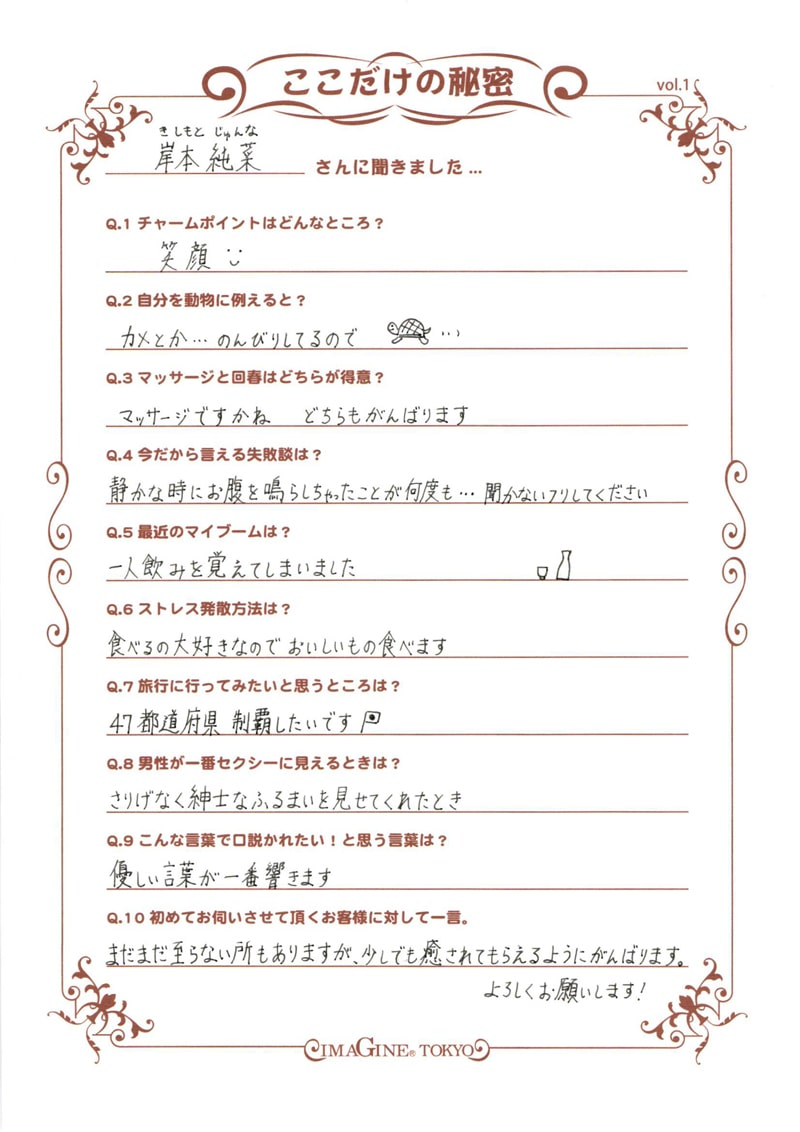 ここだけの秘密
vol.1
きしもと じゅんな
岸本 純菜 さんに聞きました...
Q.1 チャームポイントはどんなところ？
笑顔
Q.2 自分を動物に例えると？
カメとか… のんびりしてるので …
Q.3 マッサージと回春はどちらが得意？
マッサージですかね どちらもがんばります
Q.4 今だから言える失敗談は？
静かな時にお腹を鳴らしちゃったことが何度も… 聞かないフリしてください
Q.5 最近のマイブームは？
一人飲みを覚えてしまいました
Q.6 ストレス発散方法は？
食べるの大好きなので おいしいもの食べます
Q.7 旅行に行ってみたいと思うところは？
47都道府県 制覇したいです
Q.8 男性が一番セクシーに見えるときは？
さりげなく紳士なふるまいを見せてくれたとき
Q.9 こんな言葉で口説かれたい！と思う言葉は？
優しい言葉が一番響きます
Q.10 初めてお伺いさせて頂くお客様に対して一言。
まだまだ至らない所もありますが、少しでも癒されてもらえるようにがんばります。
よろしくお願いします！
IMAGINE® TOKYO